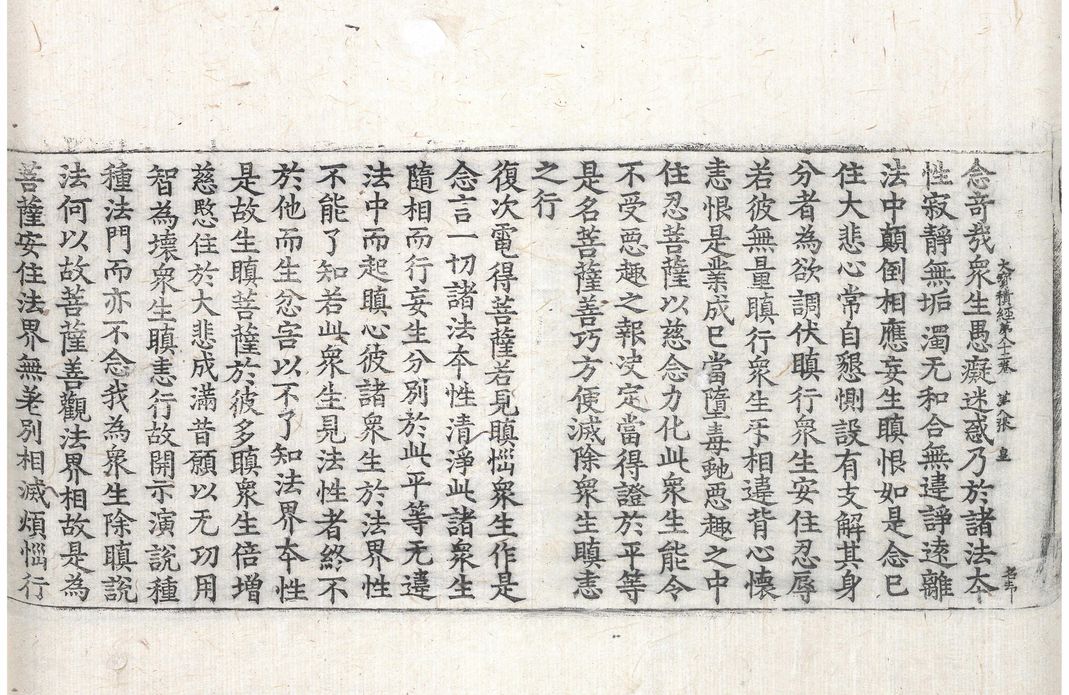 大寶積經第八十三卷 第八張 皇
念奇哉衆生愚癡迷惑乃於諸法本
性寂靜無垢濁无和合無違諍遠離
法中顛倒相應妄生瞋恨如是念已
住大悲心常自懇惻設有支解其身
分者為欲調伏瞋行衆生安住忍辱
若彼無量瞋行衆生乎相違背心懷
恚恨是業成已當墮毒虵惡趣之中
住忍菩薩以慈念力化此衆生能令
不受惡趣之報决定當得證於平等
是名菩薩善巧方便滅除衆生瞋恚
之行
復次電得菩薩若見瞋惱衆生作是
念言一切諸法本性清淨此諸衆生
隨相而行妄生分別於此平等无違
法中而起瞋心彼諸衆生於法界性
不能了知若此衆生見法性者終不
於他而生忿害以不了知法界本性
是故生瞋菩薩於彼多瞋衆生倍增
慈愍住於大悲成滿昔願以无功用
智為壞衆生瞋恚行故開示演說種
種法門而亦不念我為衆生除瞋說
法何以故菩薩善觀法界相故是為
菩薩安住法界無差別相滅煩惱行